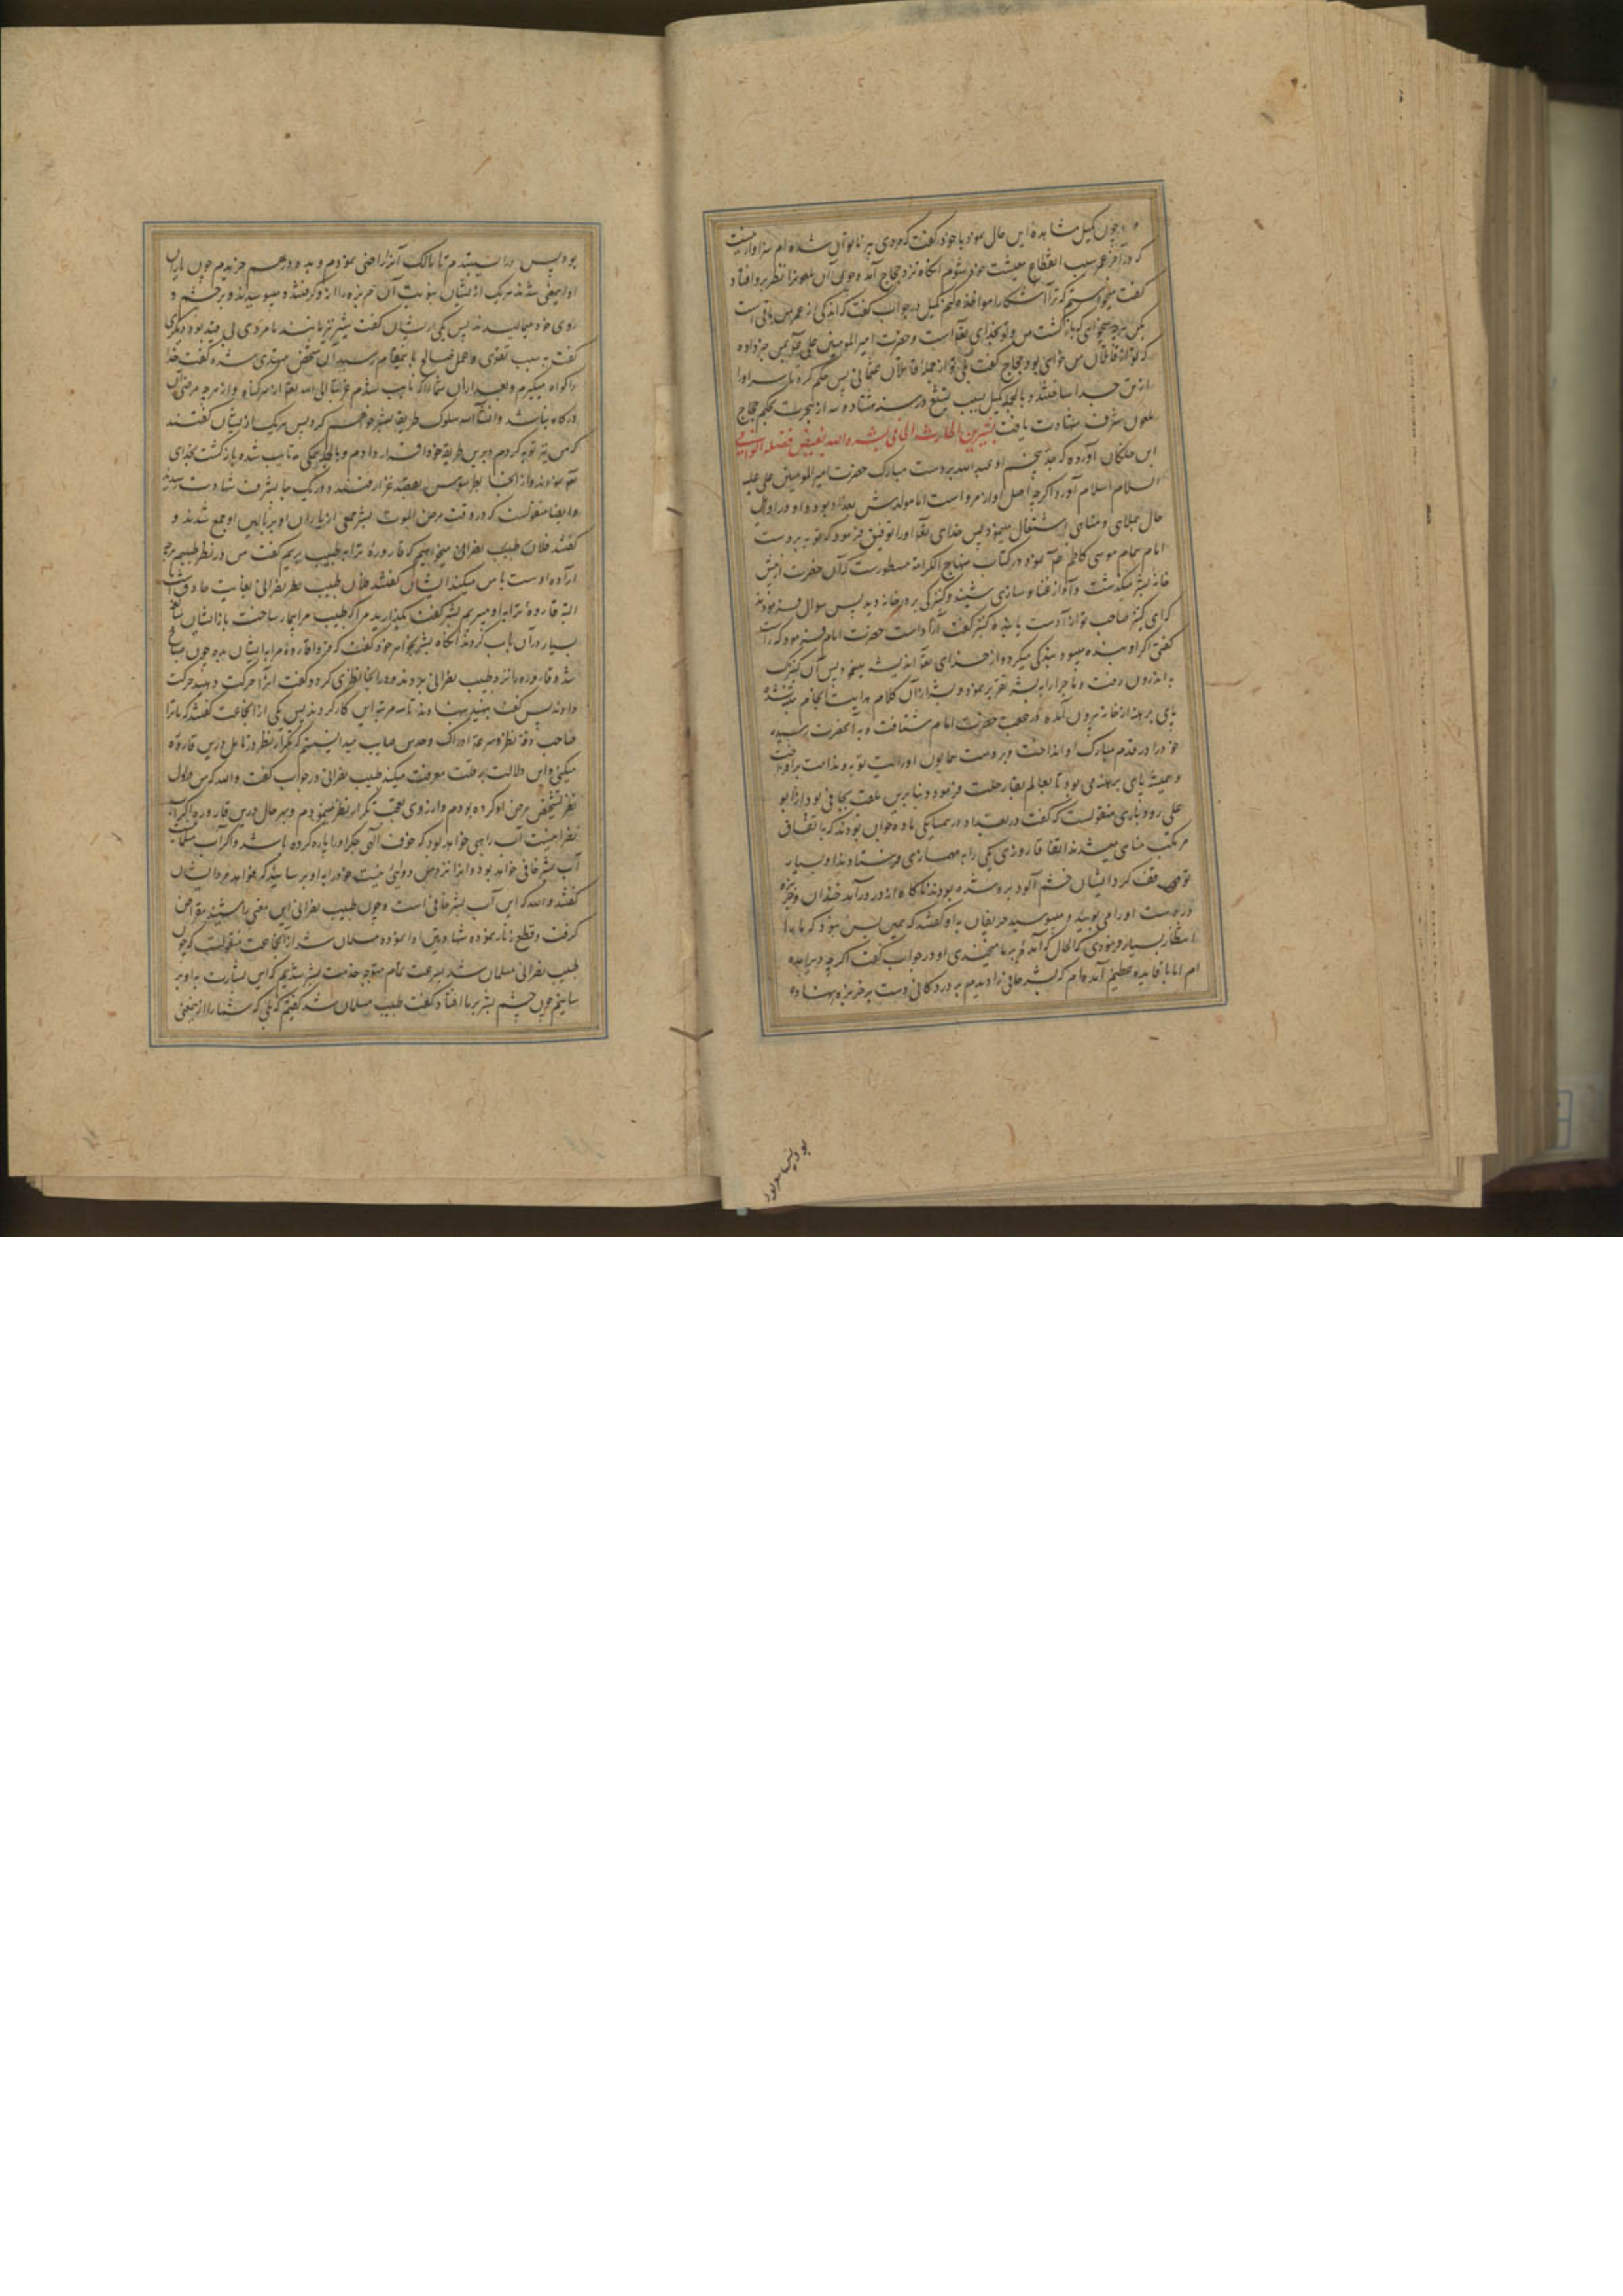 چون کمیل مشاهدهٔ این حال نمود با خود گفت که مردی پیر ناتوان شده ام سزاوار نیست
که در آخر عمر سبب انقطاع معیشت خود شوم آنگاه نزد حجاج آمد و چون آن ملعون را نظر برو افتاد
گفت میخواستم که ترا آشکارا مواخذه کنم کمیل در جواب گفت که اندکی از عمر من باقی است
بکن هرچه میخواهی که بازگشت من و تو بخدای تعا است و حضرت امیرالمومنین علی بمن خبر داده
که تو از قاتلان من خواهی بود حجاج گفت بلی تو از جملهٔ قاتلان عثمانی پس حکم کرد تا سر او را
از تن جدا ساختند و بالجمله کمیل بسبب تشیع در سنه هشتاد و سه از هجرت بحکم حجاج
ملعون بشرف شهادت یافت بشر بن الحارث الحافی بشره الله بفیض فضله الوافی
ابن خلکان آورده که جد پنجم او عبدالله بر دست مبارک حضرت امیرالمومنین علی علیه
السلام اسلام آورد اگرچه اصل او از مرو است اما مولدش بغداد بود و او در اوایل
حال بملاهی و مناهی اشتغال مینمود پس خدای تعا او را توفیق فرمود که توبه بر دست
امام همام موسی کاظم نمود و در کتاب منهاج الکرامه مسطورست که آن حضرت از پیش
خانهٔ بشر میگذشت و آواز غنا و سازی شنید و کنیزکی بر در خانه دید پس سوال فرمودند
که ای کنیز صاحب تو آزادست یا بنده کنیز گفت آزاد است حضرت امام فرمود که راست
گفتی اگر او بنده میبود بندگی میکرد و از خدای تعا اندیشه مینمود پس آن کنیزک
به اندرون رفت و ماجرا را به بشر تقریر نمود و بشر از آن کلام هدایت انجام متنبه شده
پای برهنه از خانه بیرون آمده در عقب حضرت امام شتافت و به آنحضرت رسیده
خود را در قدم مبارک او انداخت و بر دست همایون او رایت توبه و ندامت برافراخت
و همیشه پای برهنه می بود تا بعالم بقا رحلت فرمود و بنا برین ملقب بحافی بود از ابو
علی رودباری منقولست که گفت در بغداد در همسایگی ما ده جوان بودند که با تفاق
مرتکب مناهی میشدند اتفاقا روزی یکی را به مهمسازی فرستادند او بسیار
توقف کرد ایشان خشم آلود برو شده بودند ناگاه از در درآمد خندان و خربزه
در دست او را می بویید و میبوسید حریفان به او گفتند که همین بس نبود که ما را
انتظار بسیار فرمودی که الحال که آمدهٔ بر ما میخندی او در جواب گفت اگرچه دیر آمده
ام اما با فایده عظیم آمده ام که بشر حافی را دیدم بر در دکانی دست بر خربزه نهاده
بود پس
بود پس من آنرا نستیدم تا مالک آنرا راضی نمودم و به دو درهم خریدم چون یاران
او از معنی شدند هریک از ایشان بنوبت آن خربزه را ازو گرفتند و میبوسیدند و بر چشم و
روی خود میمالیدند پس یکی از ایشان گفت بشر نیز مانند ما مردی بی قید بود دیگری
گفت به سبب تقوی و عمل صالح با ینمقام رسید آن شخص مهتدی شده گفت خدا
را گواه میگیرم و بعد از آن شما را که تایب شدم الی الله تعا از هر گناه و از هرچه مرضی آن
درگاه نباشد و انشاءالله سلوک طریقه بشر خواهم کرد پس هریک از ایشان گفتند
که من نیز توبه کردم و برین طریقه خود اقرار دادم و بالجمله همگی تایب شده بازگشت بخدای
نمودند و از آنجا بطرسوس بقصد غزا رفتند و در یک جا بشرف شهادت رسیدند
و ایضا منقولست که در وقت مرض الموت بشر جمعی از یاران او بر بالین او جمع شدند و
گفتند فلان طبیب نصرانی میخواهیم که قارورهٔ ترا به طبیب بریم گفت من در نظر طبیبم هرچه
ارادهٔ اوست با من میکند ایشان گفتند فلان طبیب نصرانی بغایت حاذق است
البته قارورهٔ ترا به او میبریم بشر گفت بگذارید مرا که طبیب مرا بیمار ساخت باز ایشان مبالغه
بسیار در آن باب کردند آنگاه بشر بخواهر خود گفت که فردا قارورهٔ مرا به ایشان بده چون صباح
شد و قاروره را نزد طبیب نصرانی بردند و در آنجا نظری کرد و گفت آنرا حرکت دهید حرکت
دادند پس گفت بنهید بنهادند تا سه مرتبه این کار کردند پس یکی از آنجماعت گفتند که ما ترا
صاحب دقة نظر و سرعة ادراک و حدس صایب میدانستیم که تکرار نظر و تامل درین قاروره
میکنی و این دلالت بر قلت معرفت میکند طبیب نصرانی در جواب گفت والله که من در اول
نظر تشخیص مرض او کرده بودم و از روی تعجب تکرار نظر مینمودم و بهر حال درین قاروره اگر آب
نصرانیست آب راهبی خواهد بود که خوف الهی جگر او را پاره کرده باشد و اگر آب مسلمانست
آب بشر حافی خواهد بود و او را نزد من دوائی نیست خود را به او برسانید که خواهد مرد ایشان
گفتند والله که این آب بشر حافی است و چون طبیب نصرانی این معنی را شنید مقراض
گرفت و قطع زنار نموده شهادتین ادا نموده مسلمان شد از آنجماعت منقولست که چون
طبیب نصرانی مسلمان شد بسرعت تمام متوجه خدمت بشر شدیم که این بشارت به او بر
سانیم چون چشم بشر بر ما افتاد گفت طبیب مسلمان شد گفتیم که بلی که شما را از ینمعنی